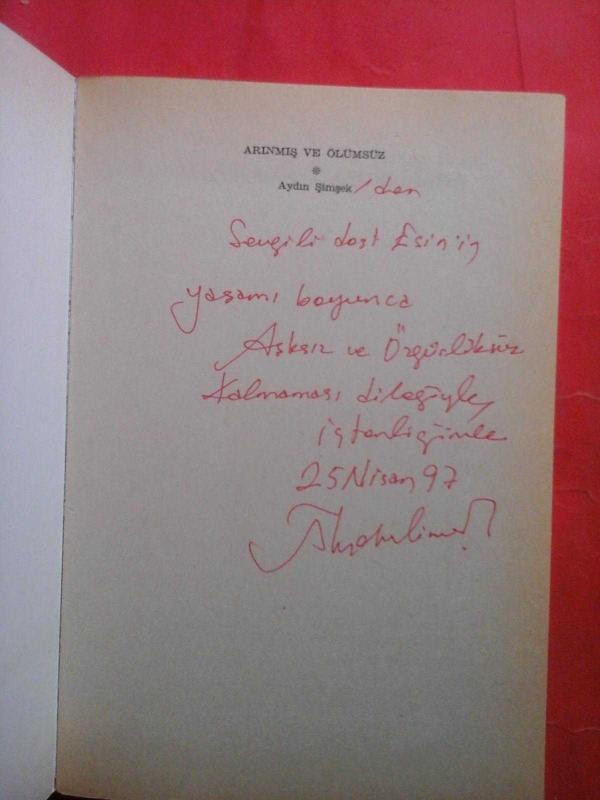 ARINMIŞ VE ÖLÜMSÜZ
Aydın Şimşek / den
Sevgili dost Esin'in
yaşamı boyunca
Aşksız ve Özgürlüksüz
kalmaması dileğiyle,
içtenliğimle
25 Nisan 97